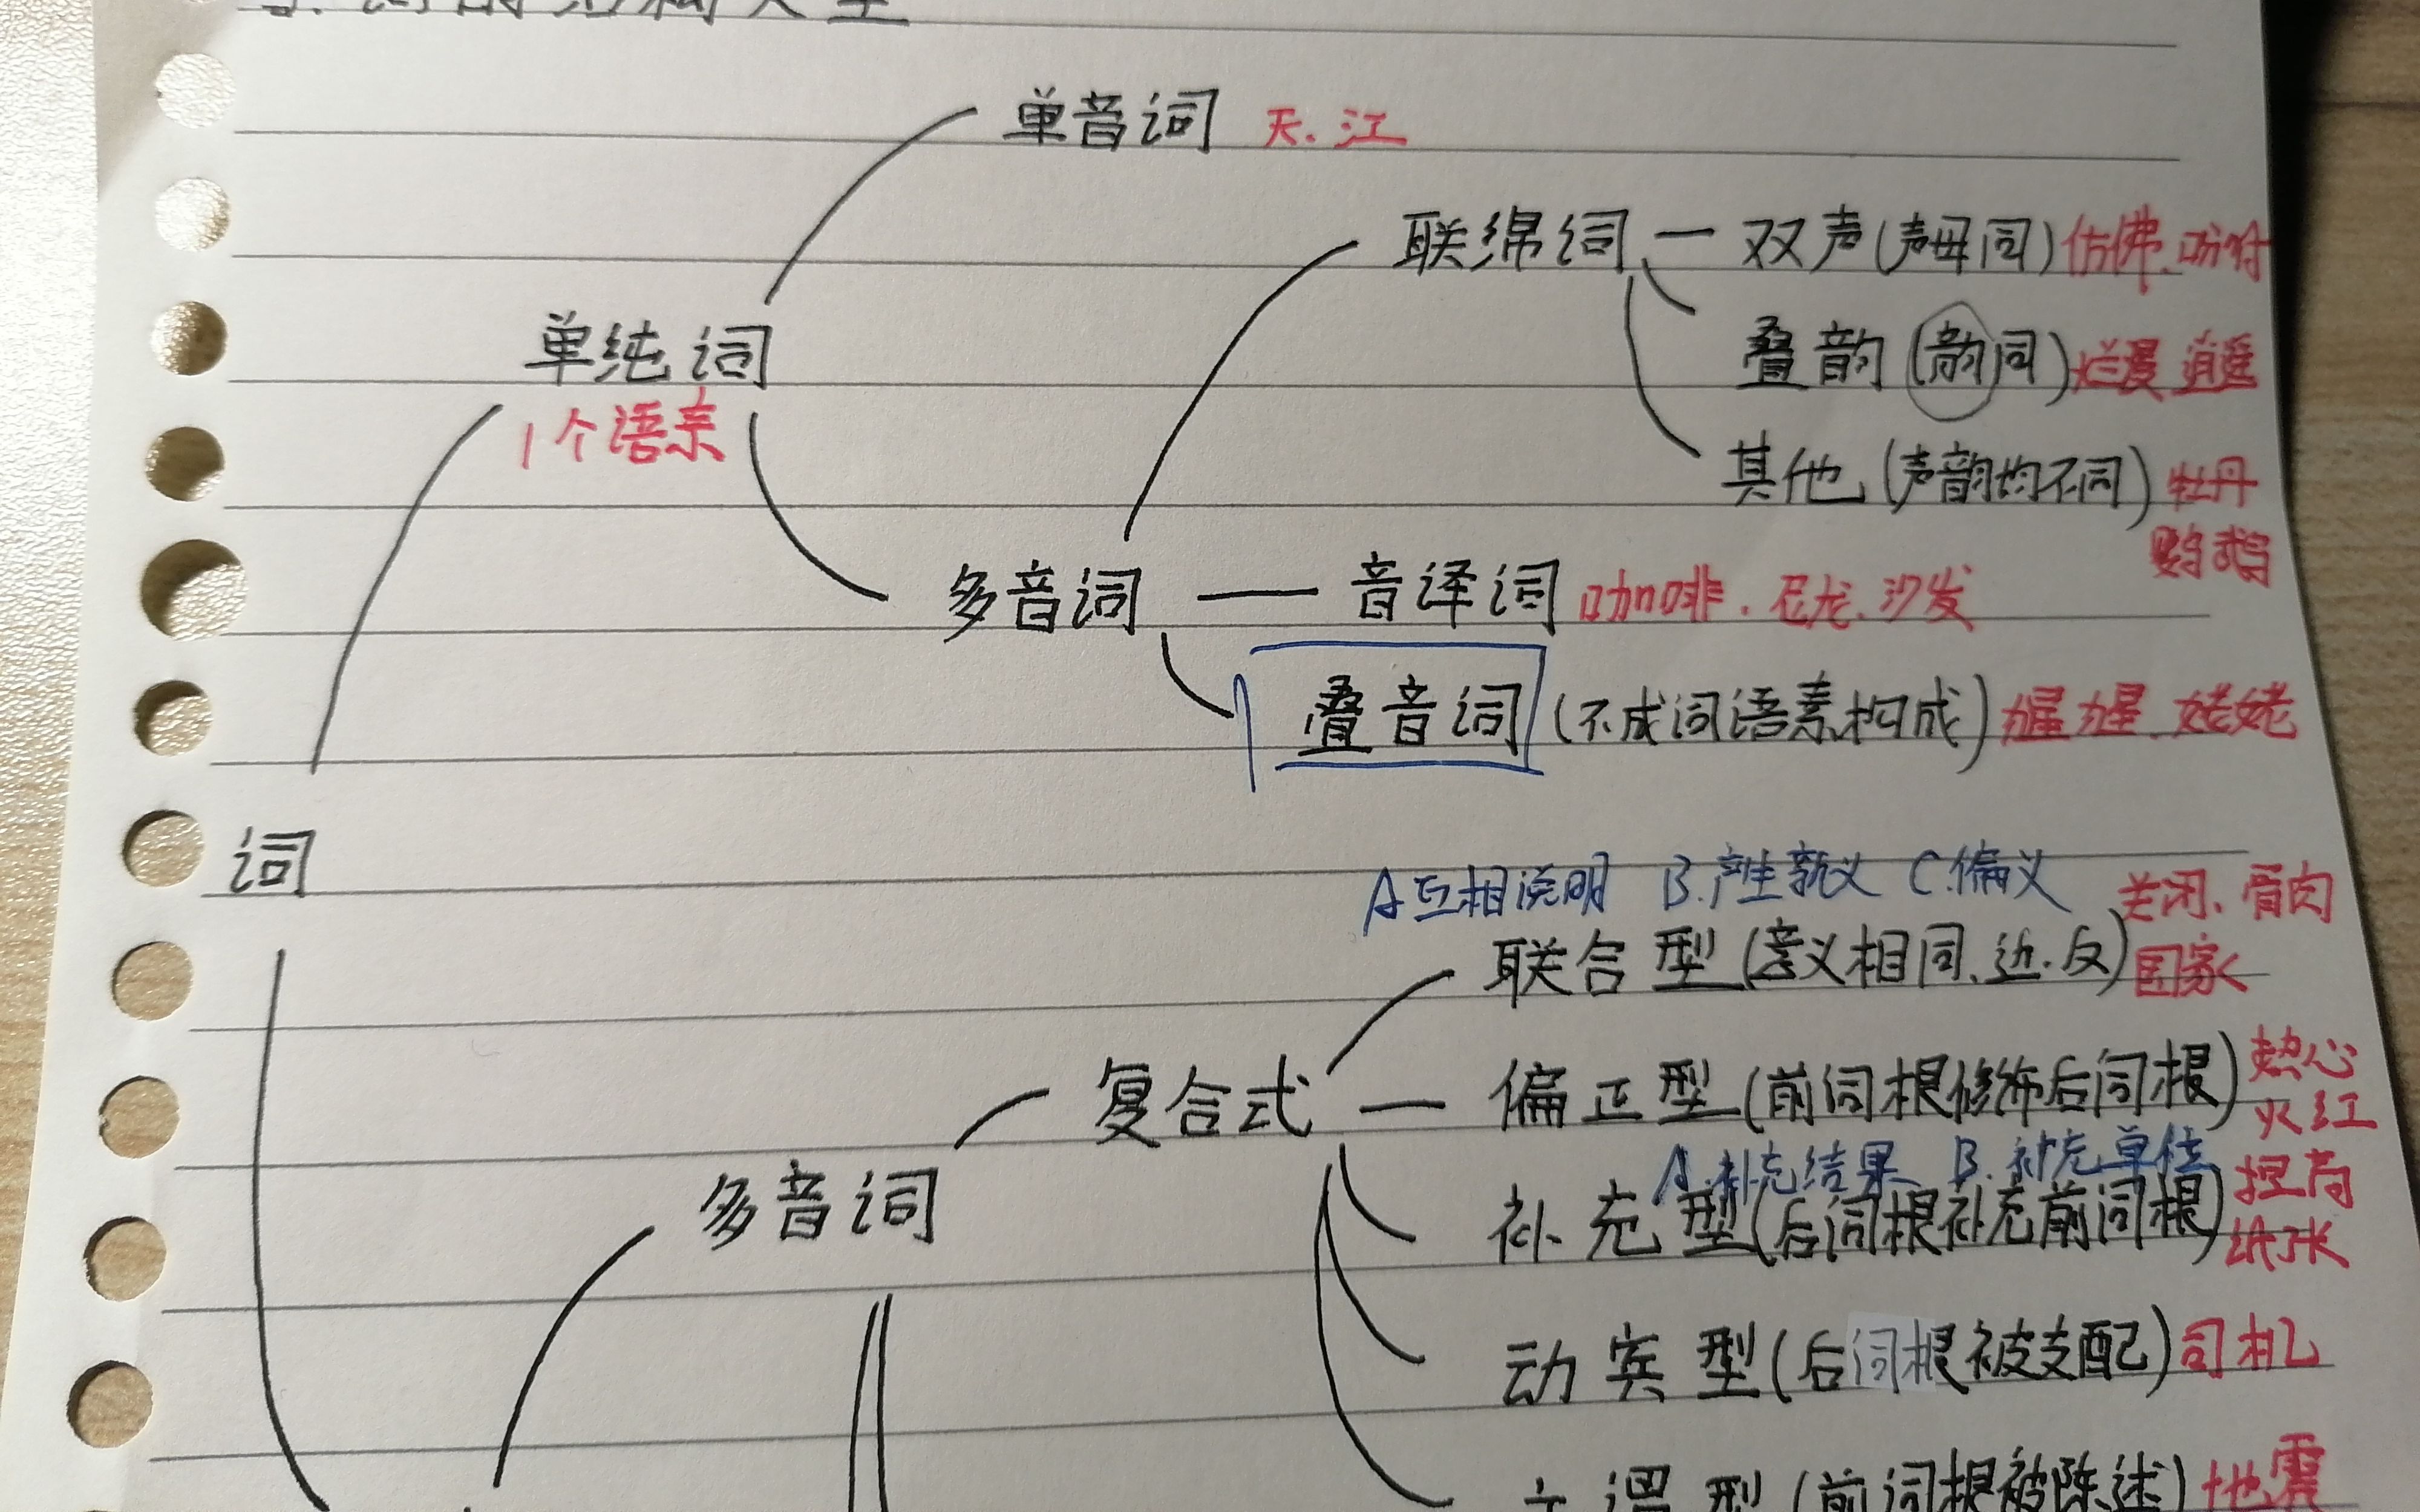 词的结构类型
单音词 天、江
联绵词 — 双声(声母同) 仿佛、吩咐
单纯词 叠韵(韵同) 烂漫 逍遥
1个语素 其他(声韵均不同) 牡丹
企鹅
多音词 — 音译词 咖啡、尼龙、沙发
叠音词(不成词语素构成) 猩猩、姥姥
词
A互相说明 B.产生新义 C.偏义 关闭、骨肉
联合型(意义相同、近、反) 国家
复合式 — 偏正型(前词根修饰后词根) 热心
火红
A.补充结果 B.补充单位
多音词 补充型(后词根补充前词根) 提高
纸张
动宾型(后词根被支配) 司机
主谓型(前词根被陈述) 地震